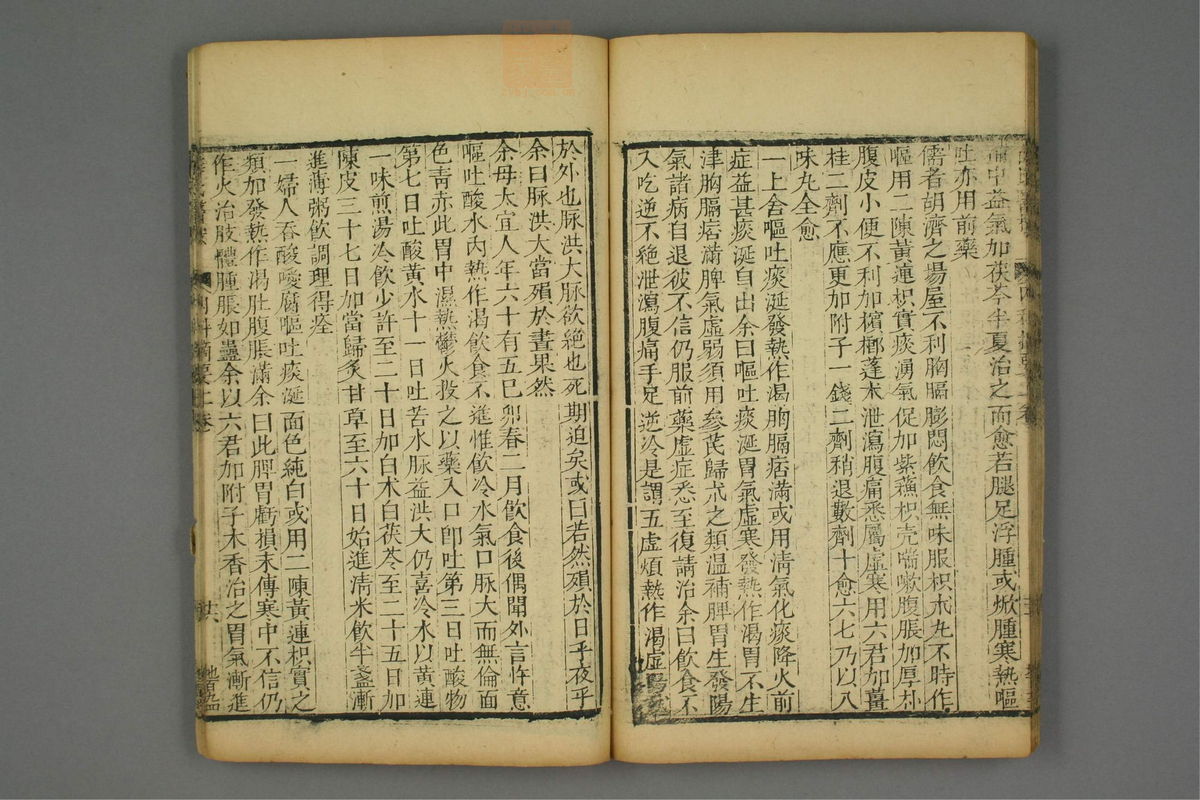 補中益氣加茯苓半夏治之而愈若腿足浮腫或焮腫寒熱嘔
吐亦用前藥
儒者胡濟之場屋不利胸膈膨悶飲食無味服枳朮丸不時作
嘔用二陳黃連枳實痰湧氣促加紫蘓枳壳喘嗽腹脹加厚朴
腹皮小便不利加檳榔蓬朮泄瀉腹痛悉屬虛寒用六君加薑
桂二劑不應更加附子一錢二劑稍退數劑十愈六七乃以八
味丸全愈
一上舍嘔吐痰涎發熱作渴胸膈痞滿或用清氣化痰降火前
症益甚痰涎自出余曰嘔吐痰涎胃氣虛寒發熱作渴胃不生
津胸膈痞滿脾氣虛弱須用參芪歸朮之類温補脾胃生發陽
氣諸病自退彼不信仍服前藥虛症悉至復請治余曰飲食不
入吃逆不絶泄瀉腹痛手足逆冷是謂五虛煩熱作渴虛陽
於外也脉洪大脉欲絶也死期迫矣或曰若然殞於日乎夜乎
余曰脉洪大當殞於晝果然
余母太宜人年六十有五已卯春二月飲食後偶聞外言忤意
嘔吐酸水內熱作渴飲食不進惟飲冷水氣口脉大而無倫面
色青赤此胃中濕熱鬱火投之以藥入口卽吐第三日吐酸物
第七日吐酸黃水十一日吐苦水脉益洪大仍喜冷水以黃連
一味煎湯冷飲少許至二十日加白朮白茯苓至二十五日加
陳皮三十七日加當歸炙甘草至六十日始進清米飲半盞漸
進薄粥飲調理得痊
一婦人吞酸噯腐嘔吐痰涎面色純白或用二陳黃連枳實之
類加發熱作渴肚腹脹滿余曰此脾胃虧損末傳寒中不信仍
作火治肢體腫脹如蠱余以六君加附子木香治之胃氣漸進
內科摘要上卷
廿六